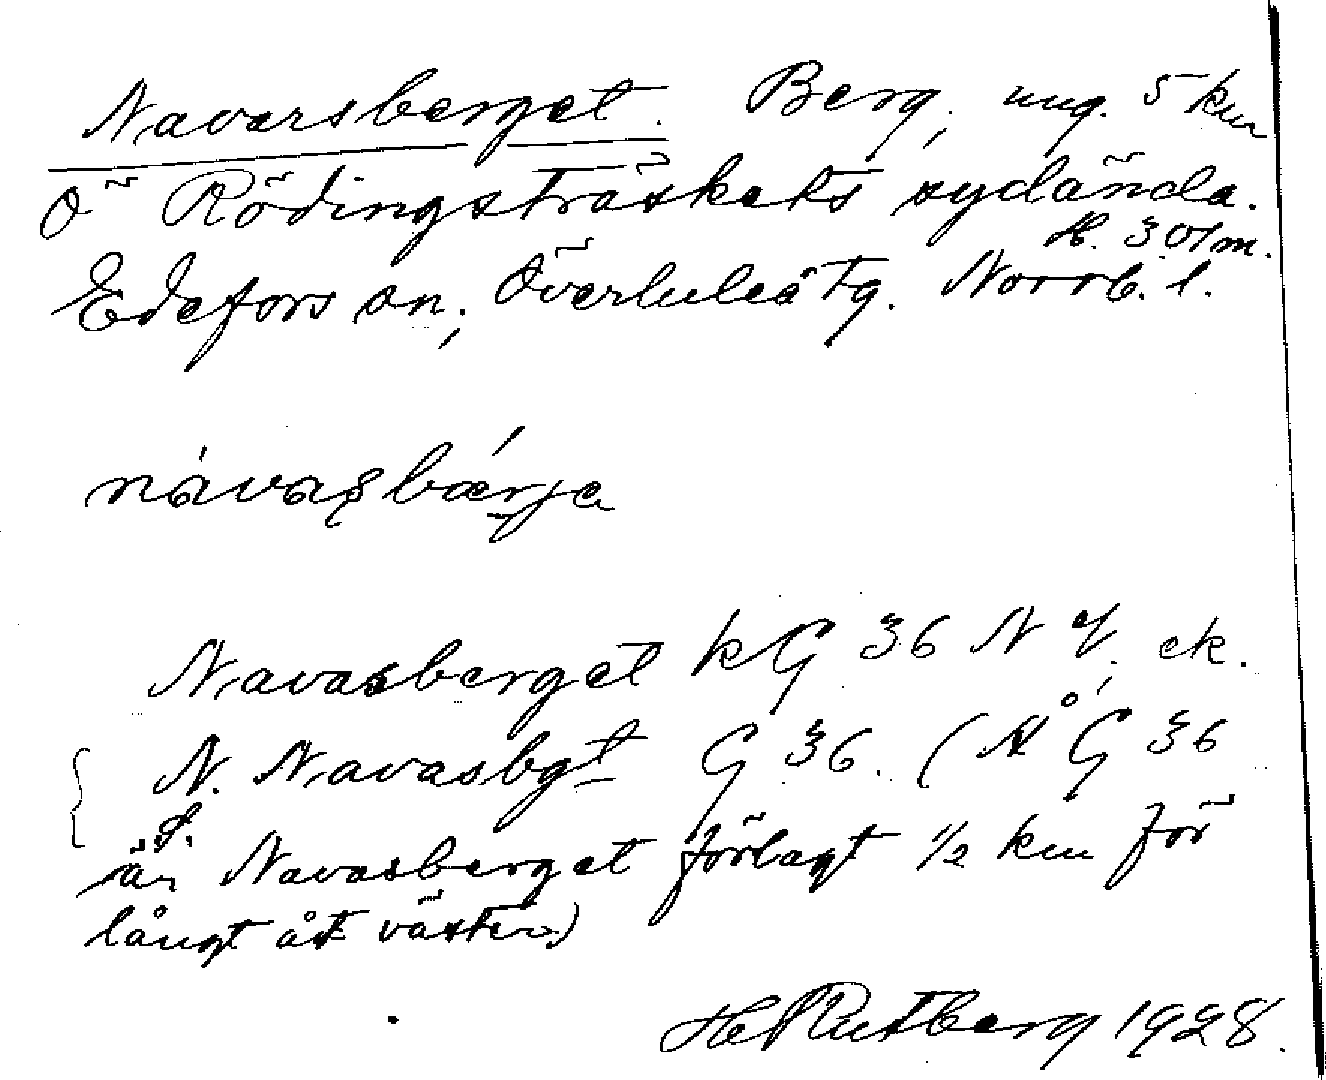 Navarsberget. Berg, ung. 5 km
O Rödingsträskets sydända.
H. 301 m.
Edefors sn, Överluleå tg. Norrb. l.
návasbǽrjə
Navasberget kG 36 NV, ek.
N. Navasbgt G 36. (Å G 36
S.
är Navasberget förlagt 1/2 km för
långt åt väster.)
H Rutberg 1928.